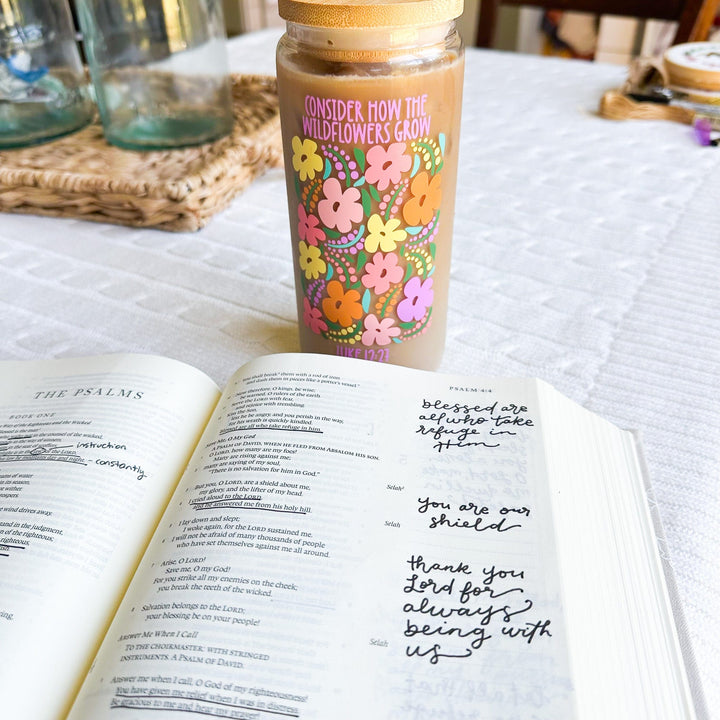 CONSIDER HOW THE
WILDFLOWERS GROW
LUKE 12:27
THE PSALMS
BOOK ONE
instruction
constantly
wind drives away.
and in the judgment,
righteous,
PSALM 4:4
You shall break them with a rod of iron
and dash them in pieces like a potter's vessel."
Now therefore, O kings, be wise;
be warned, O rulers of the earth.
Serve the LORD with fear,
and rejoice with trembling.
Kiss the Son,
lest he be angry, and you perish in the way,
for his wrath is quickly kindled.
Blessed are all who take refuge in him.
Save Me, O My God
A PSALM OF DAVID, WHEN HE FLED FROM ABSALOM HIS SON.
O LORD, how many are my foes!
Many are rising against me;
many are saying of my soul,
"There is no salvation for him in God."
Selah
But you, O LORD, are a shield about me,
my glory, and the lifter of my head.
I cried aloud to the LORD,
and he answered me from his holy hill.
Selah
I lay down and slept;
I woke again, for the LORD sustained me.
I will not be afraid of many thousands of people
who have set themselves against me all around.
Arise, O LORD!
Save me, O my God!
For you strike all my enemies on the cheek;
you break the teeth of the wicked.
Salvation belongs to the LORD;
your blessing be on your people!
Selah
Answer Me When I Call
TO THE CHOIRMASTER: WITH STRINGED
INSTRUMENTS. A PSALM OF DAVID.
Answer me when I call, O God of my righteousness!
You have given me relief when I was in distress.
Be gracious to me and hear my prayer!
blessed are
all who take
refuge in
Him
you are our
shield
thank you
Lord for
always
being with
us